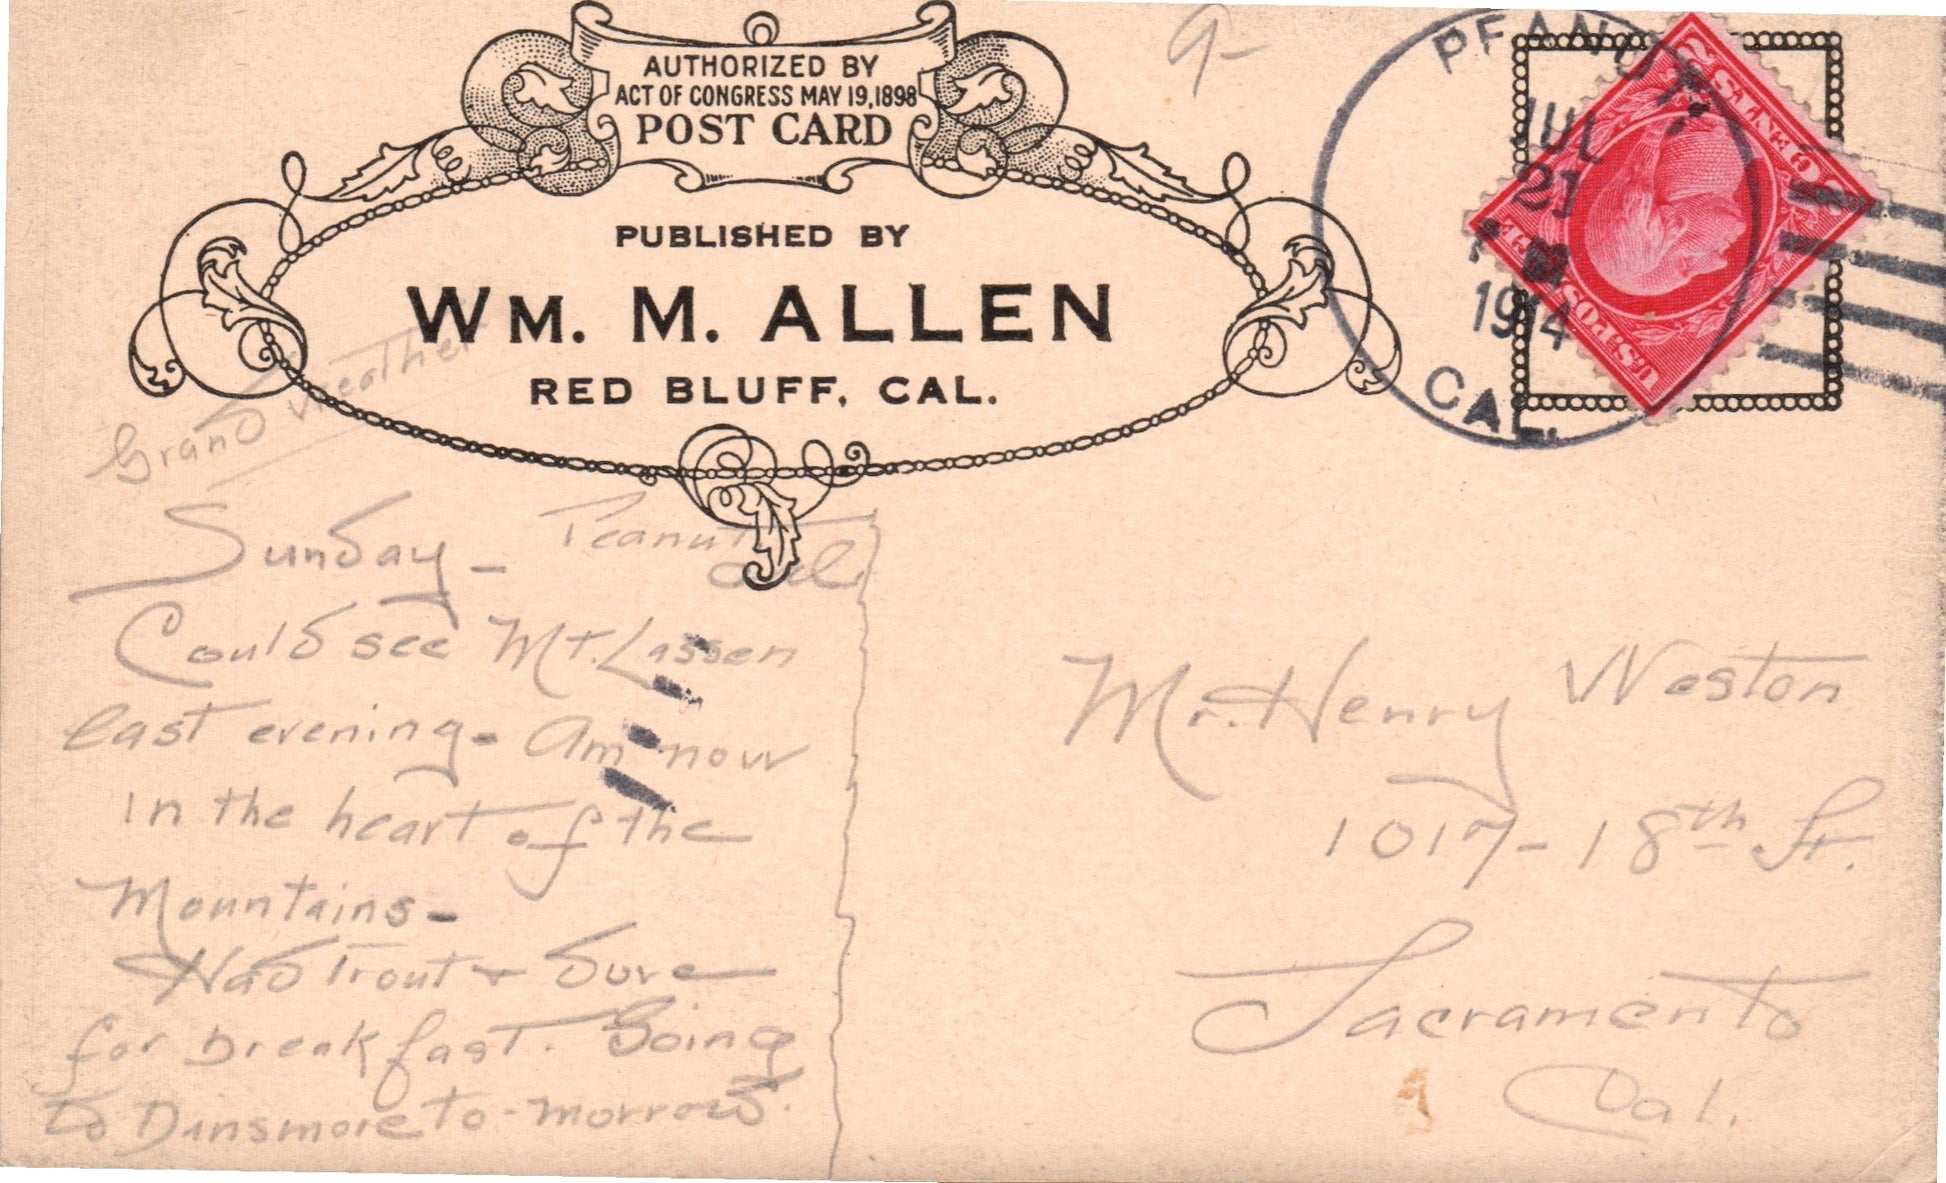 9-
AUTHORIZED BY
ACT OF CONGRESS MAY 19, 1898
POST CARD
PUBLISHED BY
WM. M. ALLEN
RED BLUFF, CAL.
PEANUT
JUL
21
1914
CAL.
U.S. POSTAGE
2 CENTS 2
Grand weather
Sunday - Peanut
Cal
Could see Mt. Lassen
last evening - Am now
in the heart of the
Mountains -
Had Trout + Dove
for breakfast. Going
to Dinsmore to-morrow.
Mr. Henry Weston
1017 - 18th St.
Sacramento
Cal.